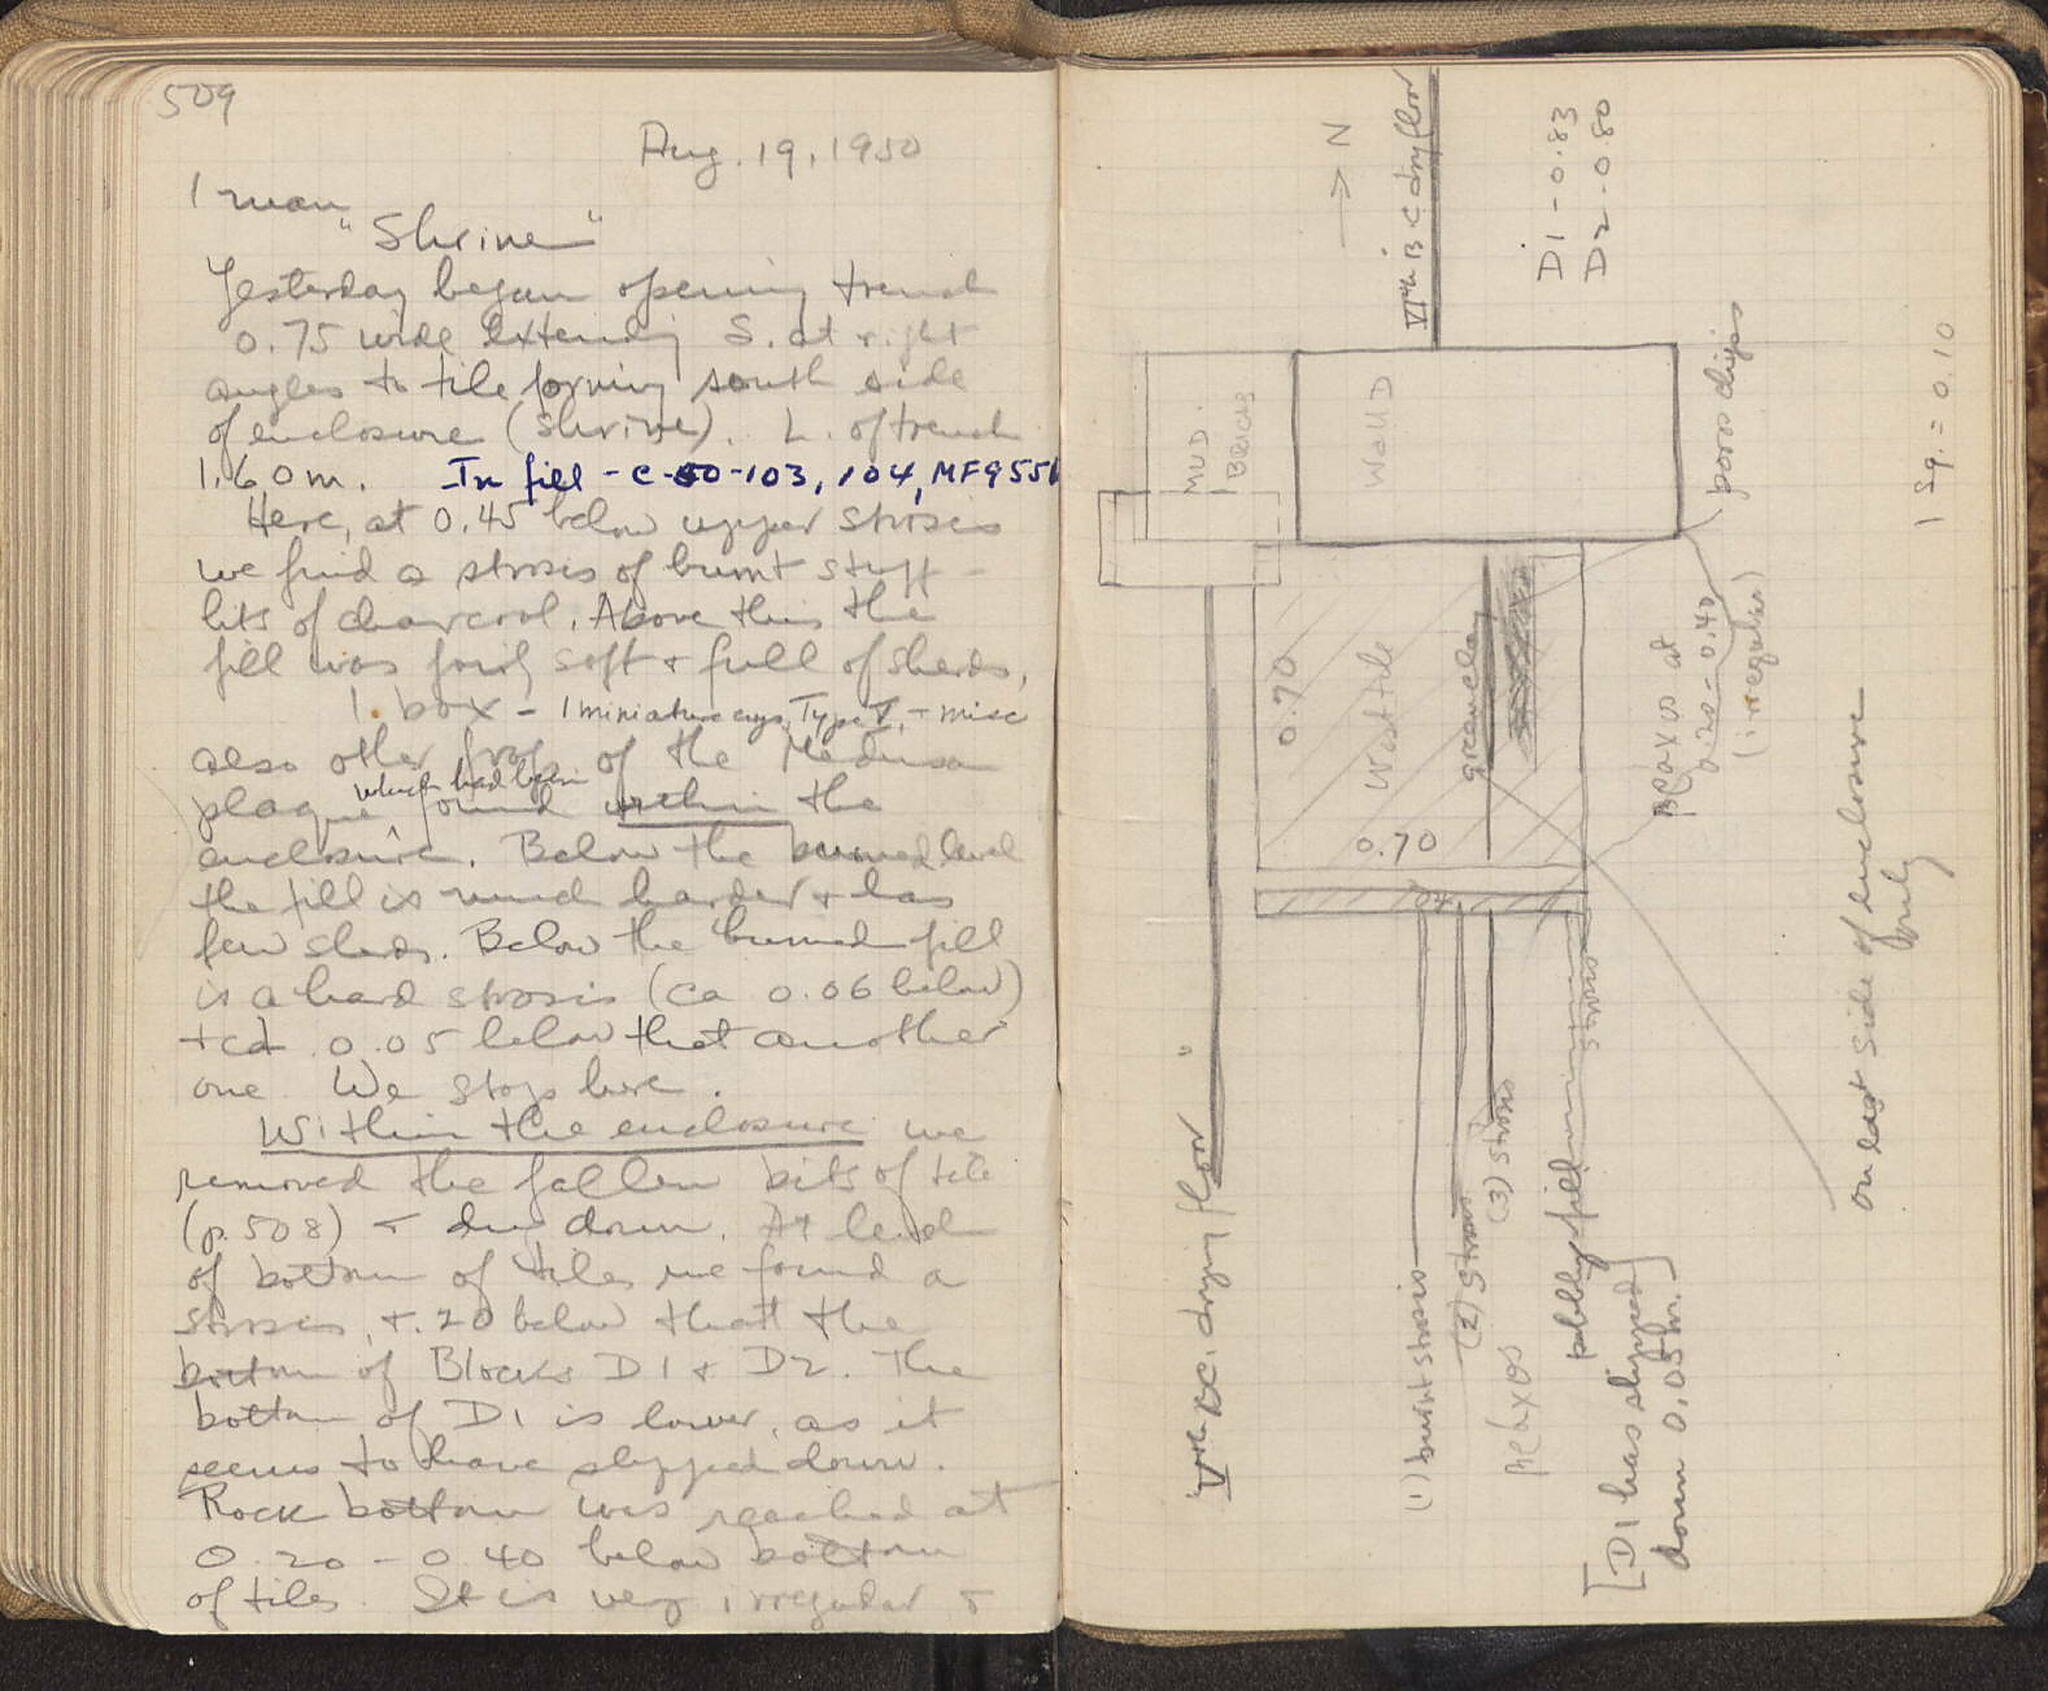 509
Aug. 19, 1950
1 man
"Shrine"
Yesterday began opening trench
0.75 wide extending S. at right
angles to tile forming south side
of enclosure (shrine). L. of trench
1.60 m. In fill - C-50-103, 104, MF9551
Here, at 0.45 below upper strosis
we find a strosis of burnt stuff -
bits of charcoal. Above this the
fill was fairly soft + full of sherds,
1 box - 1 miniature cup, Type I, + misc
also other frag. of the Medusa
plaque which had been found within the
enclosure. Below the burned level
the fill is much harder + has
few sherds. Below the burned fill
is a hard strosis (ca 0.06 below)
+ ca 0.05 below that another
one. We stop here.
Within the enclosure we
removed the fallen bits of tile
(p. 508) + dug down. At level
of bottom of tiles we found a
strosis, + .20 below that the
bottom of Blocks D1 + D2. The
bottom of D1 is lower, as it
seems to have slipped down.
Rock bottom was reached at
0.20 - 0.40 below bottom
of tiles. It is very irregular +
→ N
VIth B C dry floor
D1 - 0.83
D2 - 0.80
MUD.
Blocks
Wall D
poros chips
1 sq. = 0.10
0.70
West tile
green clay
0.70
βράχος at
0.20 - 0.40
(irregular)
04
strosis
on east side of enclosure
only
Vth BC. drying floor
(1) burnt strosis
(2) strosis
(3) strosis
βράχος
pebbly fill
[D1 has slipped
down 0.05 m.]